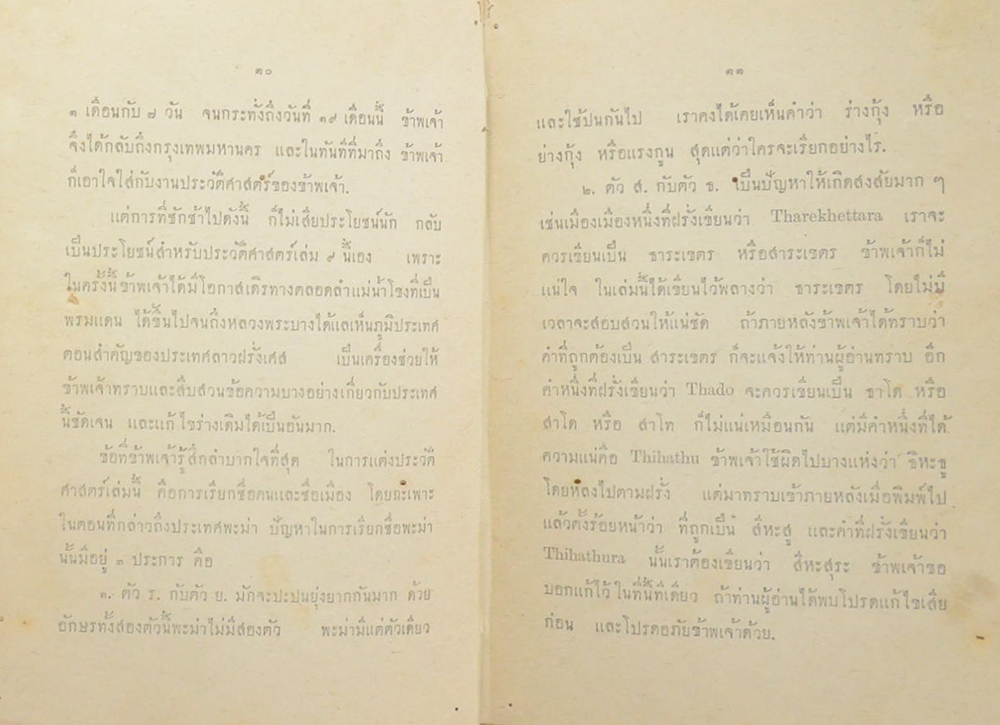 ๑๐
๑ เดือนกับ ๘ วัน จนกระทั่งถึงวันที่ ๑๙ เดือนนี้ ข้าพเจ้า
จึงได้กลับถึงกรุงเทพมหานคร และในทันทีที่มาถึง ข้าพเจ้า
ก็เอาใจใส่กับงานประวัติศาสตร์ของข้าพเจ้า.
แต่การที่ชักช้าไปดังนี้ ก็ไม่เสียประโยชน์นัก กลับ
เป็นประโยชน์สำหรับประวัติศาสตร์เล่ม ๙ นี้เอง เพราะ
ในครั้งนี้ข้าพเจ้าได้มีโอกาสเดิรทางตลอดลำแม่น้ำโขงที่เป็น
พรมแดน ได้ขึ้นไปจนถึงหลวงพระบางได้แลเห็นภูมิประเทศ
ตอนสำคัญของประเทศลาวฝรั่งเศส เป็นเครื่องช่วยให้
ข้าพเจ้าทราบและสืบสวนข้อความบางอย่างเกี่ยวกับประเทศ
นี้ชัดเจน และแก้ไขร่างเดิมได้เป็นอันมาก.
ข้อที่ข้าพเจ้ารู้สึกลำบากใจที่สุด ในการแต่งประวัติ
ศาสตร์เล่มนี้ คือการเรียกชื่อคนและชื่อเมือง โดยฉะเพาะ
ในตอนที่กล่าวถึงประเทศพะม่า ปัญหาในการเรียกชื่อพะม่า
นั้นมีอยู่ ๓ ประการ คือ
๑. ตัว ร. กับตัว ย. มักจะปะปนยุ่งยากกันมาก ด้วย
อักษรทั้งสองตัวนี้พะม่าไม่มีสองตัว พะม่ามีแต่ตัวเดียว
๑๑
และใช้ปนกันไป เราคงได้เคยเห็นคำว่า ร่างกุ้ง หรือ
ย่างกุ้ง หรือแรงกูน สุดแต่ว่าใครจะเรียกอย่างไร.
๒. ตัว ส. กับตัว ธ. เป็นปัญหาให้เกิดสงสัยมาก ๆ
เช่นเมืองเมืองหนึ่งที่ฝรั่งเขียนว่า Tharekhettara เราจะ
ควรเขียนเป็น ธาระเขตร หรือสาระเขตร ข้าพเจ้าก็ไม่
แน่ใจ ในเล่มนี้ได้เขียนไว้พลางว่า ธาระเขตร โดยไม่มี
เวลาจะสอบสวนให้แน่ชัด ถ้าภายหลังข้าพเจ้าได้ทราบว่า
คำที่ถูกต้องเป็น สาระเขตร ก็จะแจ้งให้ท่านผู้อ่านทราบ อีก
คำหนึ่งที่ฝรั่งเขียนว่า Thado จะควรเขียนเป็น ธาโด หรือ
สาโด หรือ สาโท ก็ไม่แน่เหมือนกัน แต่มีคำหนึ่งที่ได้
ความแน่คือ Thihathu ข้าพเจ้าใช้ผิดไปบางแห่งว่า ธิหะธู
โดยหลงไปตามฝรั่ง แต่มาทราบเข้าภายหลังเมื่อพิมพ์ไป
แล้วตั้งร้อยหน้าว่า ที่ถูกเป็น สีหะสู และคำที่ฝรั่งเขียนว่า
Thihathura นั้นเราต้องเขียนว่า สีหะสุระ ข้าพเจ้าขอ
บอกแก้ไว้ในที่นี้ทีเดียว ถ้าท่านผู้อ่านได้พบโปรดแก้ไขเสีย
ก่อน และโปรดอภัยข้าพเจ้าด้วย.